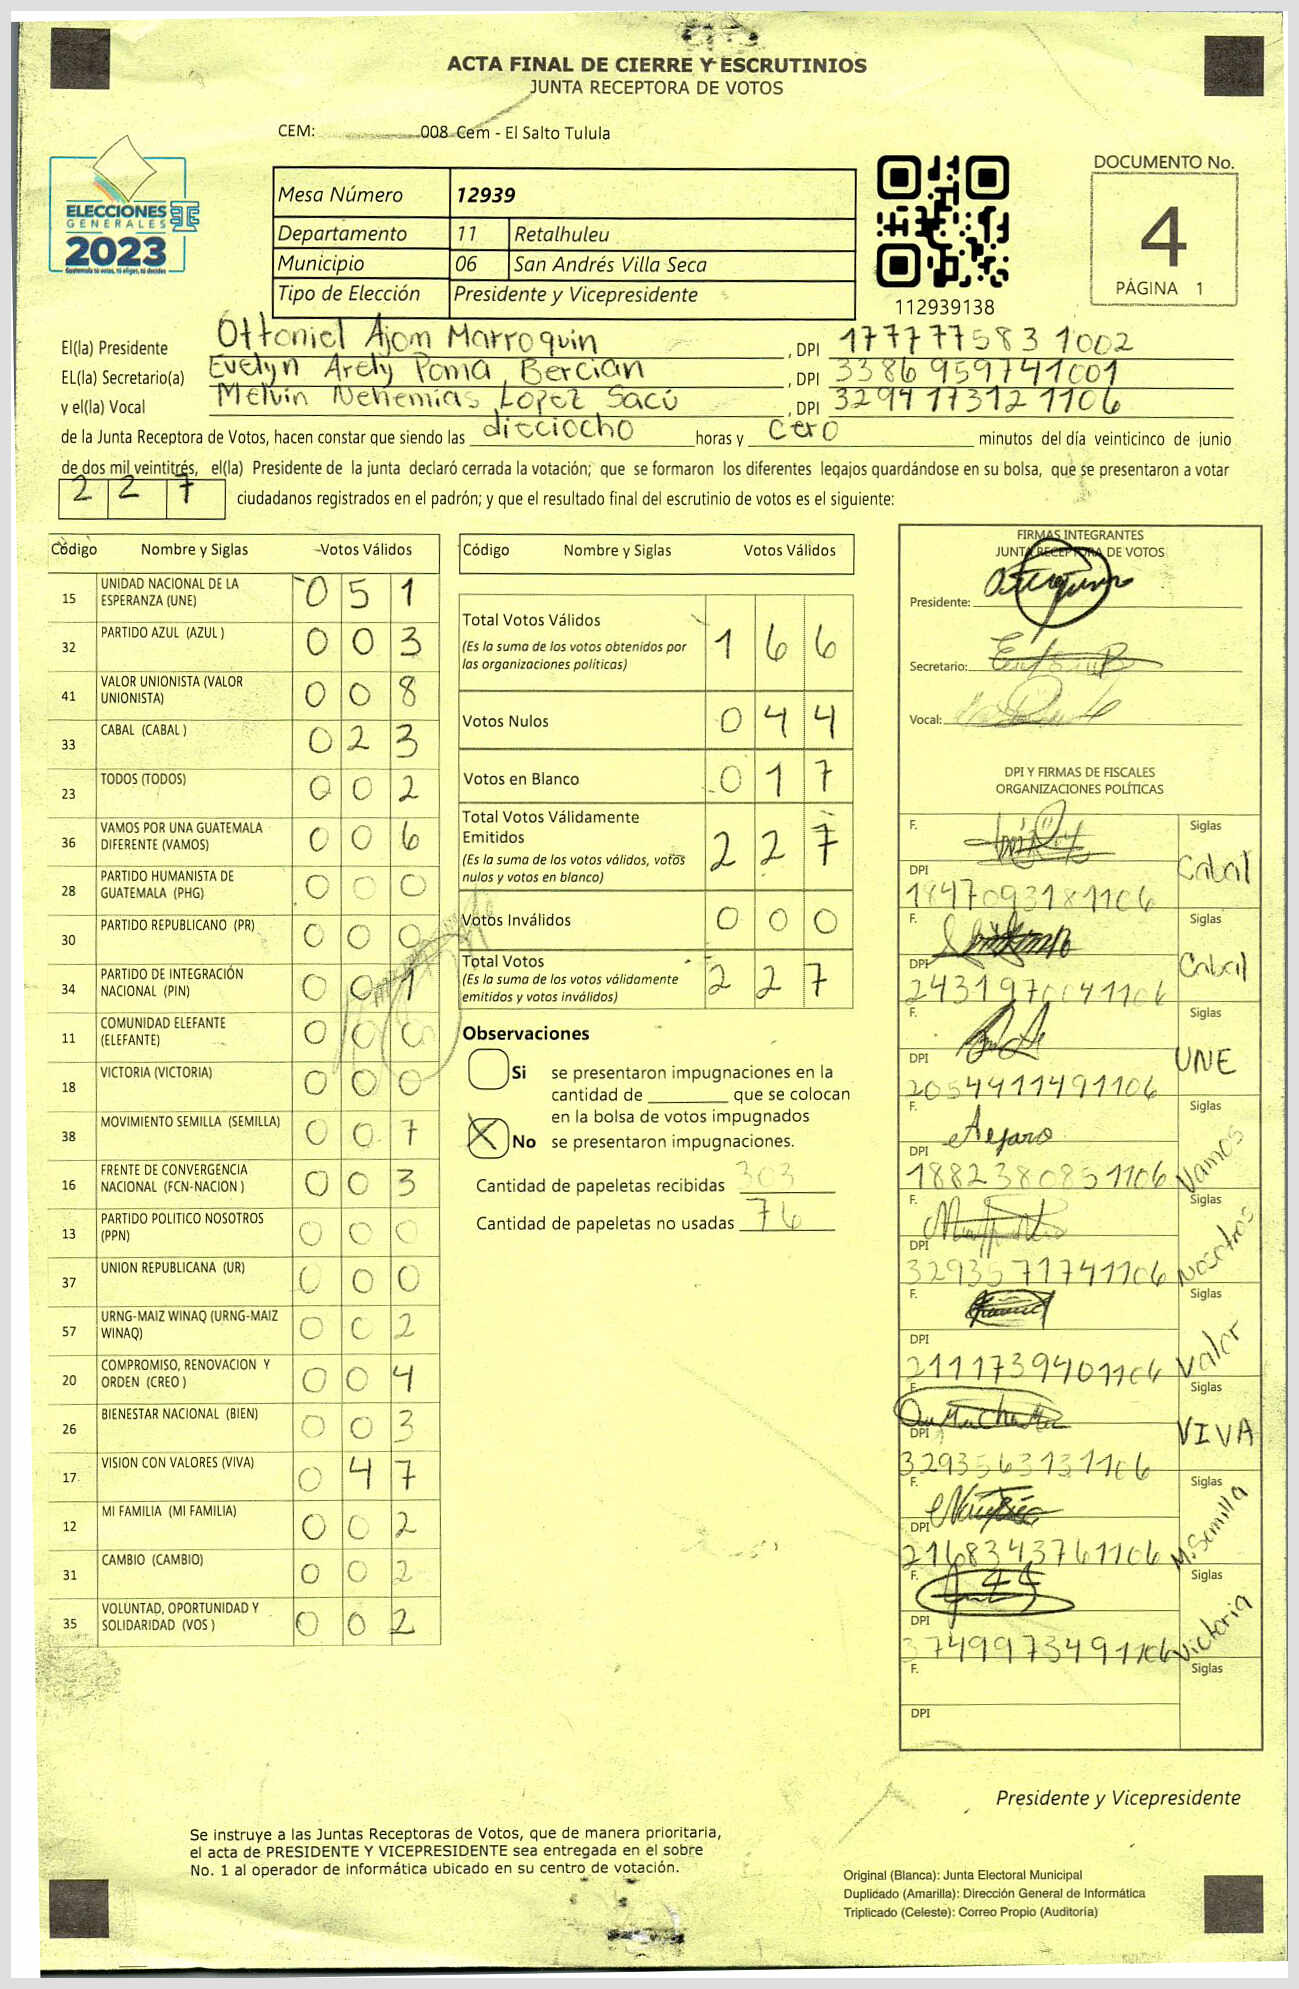 ACTA FINAL DE CIERRE Y ESCRUTINIOS
JUNTA RECEPTORA DE VOTOS
CEM: 008 Cem - El Salto Tulula
ELECCIONES
GENERALES
2023
Guatemala tú votas, tú eliges, tú decides
Mesa Número 12939
Departamento 11 Retalhuleu
Municipio 06 San Andrés Villa Seca
Tipo de Elección Presidente y Vicepresidente
112939138
DOCUMENTO No.
4
PÁGINA 1
El(la) Presidente Ottoniel Ajom Marroquin, DPI 1777775831002
EL(la) Secretario(a) Evelyn Arely Poma Bercian, DPI 3386959741001
y el(la) Vocal Melvin Nehemias Lopez Sacú, DPI 3294173121106
de la Junta Receptora de Votos, hacen constar que siendo las dieciocho horas y cero minutos del día veinticinco de junio
de dos mil veintitrés, el(la) Presidente de la junta declaró cerrada la votación; que se formaron los diferentes legajos quardándose en su bolsa, que se presentaron a votar
227 ciudadanos registrados en el padrón; y que el resultado final del escrutinio de votos es el siguiente:
Código Nombre y Siglas Votos Válidos
15 UNIDAD NACIONAL DE LA ESPERANZA (UNE) 051
32 PARTIDO AZUL (AZUL ) 003
41 VALOR UNIONISTA (VALOR UNIONISTA) 008
33 CABAL (CABAL ) 023
23 TODOS (TODOS) 002
36 VAMOS POR UNA GUATEMALA DIFERENTE (VAMOS) 006
28 PARTIDO HUMANISTA DE GUATEMALA (PHG) 000
30 PARTIDO REPUBLICANO (PR) 000
34 PARTIDO DE INTEGRACIÓN NACIONAL (PIN) 001
11 COMUNIDAD ELEFANTE (ELEFANTE) 000
18 VICTORIA (VICTORIA) 000
38 MOVIMIENTO SEMILLA (SEMILLA) 007
16 FRENTE DE CONVERGENCIA NACIONAL (FCN-NACION ) 003
13 PARTIDO POLITICO NOSOTROS (PPN) 000
37 UNION REPUBLICANA (UR) 000
57 URNG-MAIZ WINAQ (URNG-MAIZ WINAQ) 002
20 COMPROMISO, RENOVACION Y ORDEN (CREO ) 004
26 BIENESTAR NACIONAL (BIEN) 003
17 VISION CON VALORES (VIVA) 047
12 MI FAMILIA (MI FAMILIA) 002
31 CAMBIO (CAMBIO) 002
35 VOLUNTAD, OPORTUNIDAD Y SOLIDARIDAD (VOS ) 002
Código Nombre y Siglas Votos Válidos
Total Votos Válidos 166
(Es la suma de los votos obtenidos por las organizaciones políticas)
Votos Nulos 044
Votos en Blanco 017
Total Votos Válidamente Emitidos 227
(Es la suma de los votos válidos, votos nulos y votos en blanco)
Votos Inválidos 000
Total Votos 227
(Es la suma de los votos válidamente emitidos y votos inválidos)
Observaciones
Si se presentaron impugnaciones en la
cantidad de ________ que se colocan
en la bolsa de votos impugnados
X No se presentaron impugnaciones.
Cantidad de papeletas recibidas 303
Cantidad de papeletas no usadas 76
FIRMAS INTEGRANTES
JUNTA RECEPTORA DE VOTOS
Presidente:
Secretario:
Vocal:
DPI Y FIRMAS DE FISCALES
ORGANIZACIONES POLÍTICAS
F. Siglas
DPI 1847093181106 Cabal
F. Siglas
DPI 2431970041106 Cabal
F. Siglas
DPI 2054411491106 UNE
F. Alfaro Siglas
DPI 1882380851106 Vamos
F. Siglas
DPI 3293571741106 Nosotros
F. Siglas
DPI 2111739401106 Valor
F. Siglas
DPI 3293563131106 VIVA
F. Siglas
DPI 2168343761106 M. Semilla
F. Siglas
DPI 3749973491106 Victoria
F. Siglas
DPI
Presidente y Vicepresidente
Se instruye a las Juntas Receptoras de Votos, que de manera prioritaria,
el acta de PRESIDENTE Y VICEPRESIDENTE sea entregada en el sobre
No. 1 al operador de informática ubicado en su centro de votación.
Original (Blanca): Junta Electoral Municipal
Duplicado (Amarilla): Dirección General de Informática
Triplicado (Celeste): Correo Propio (Auditoría)